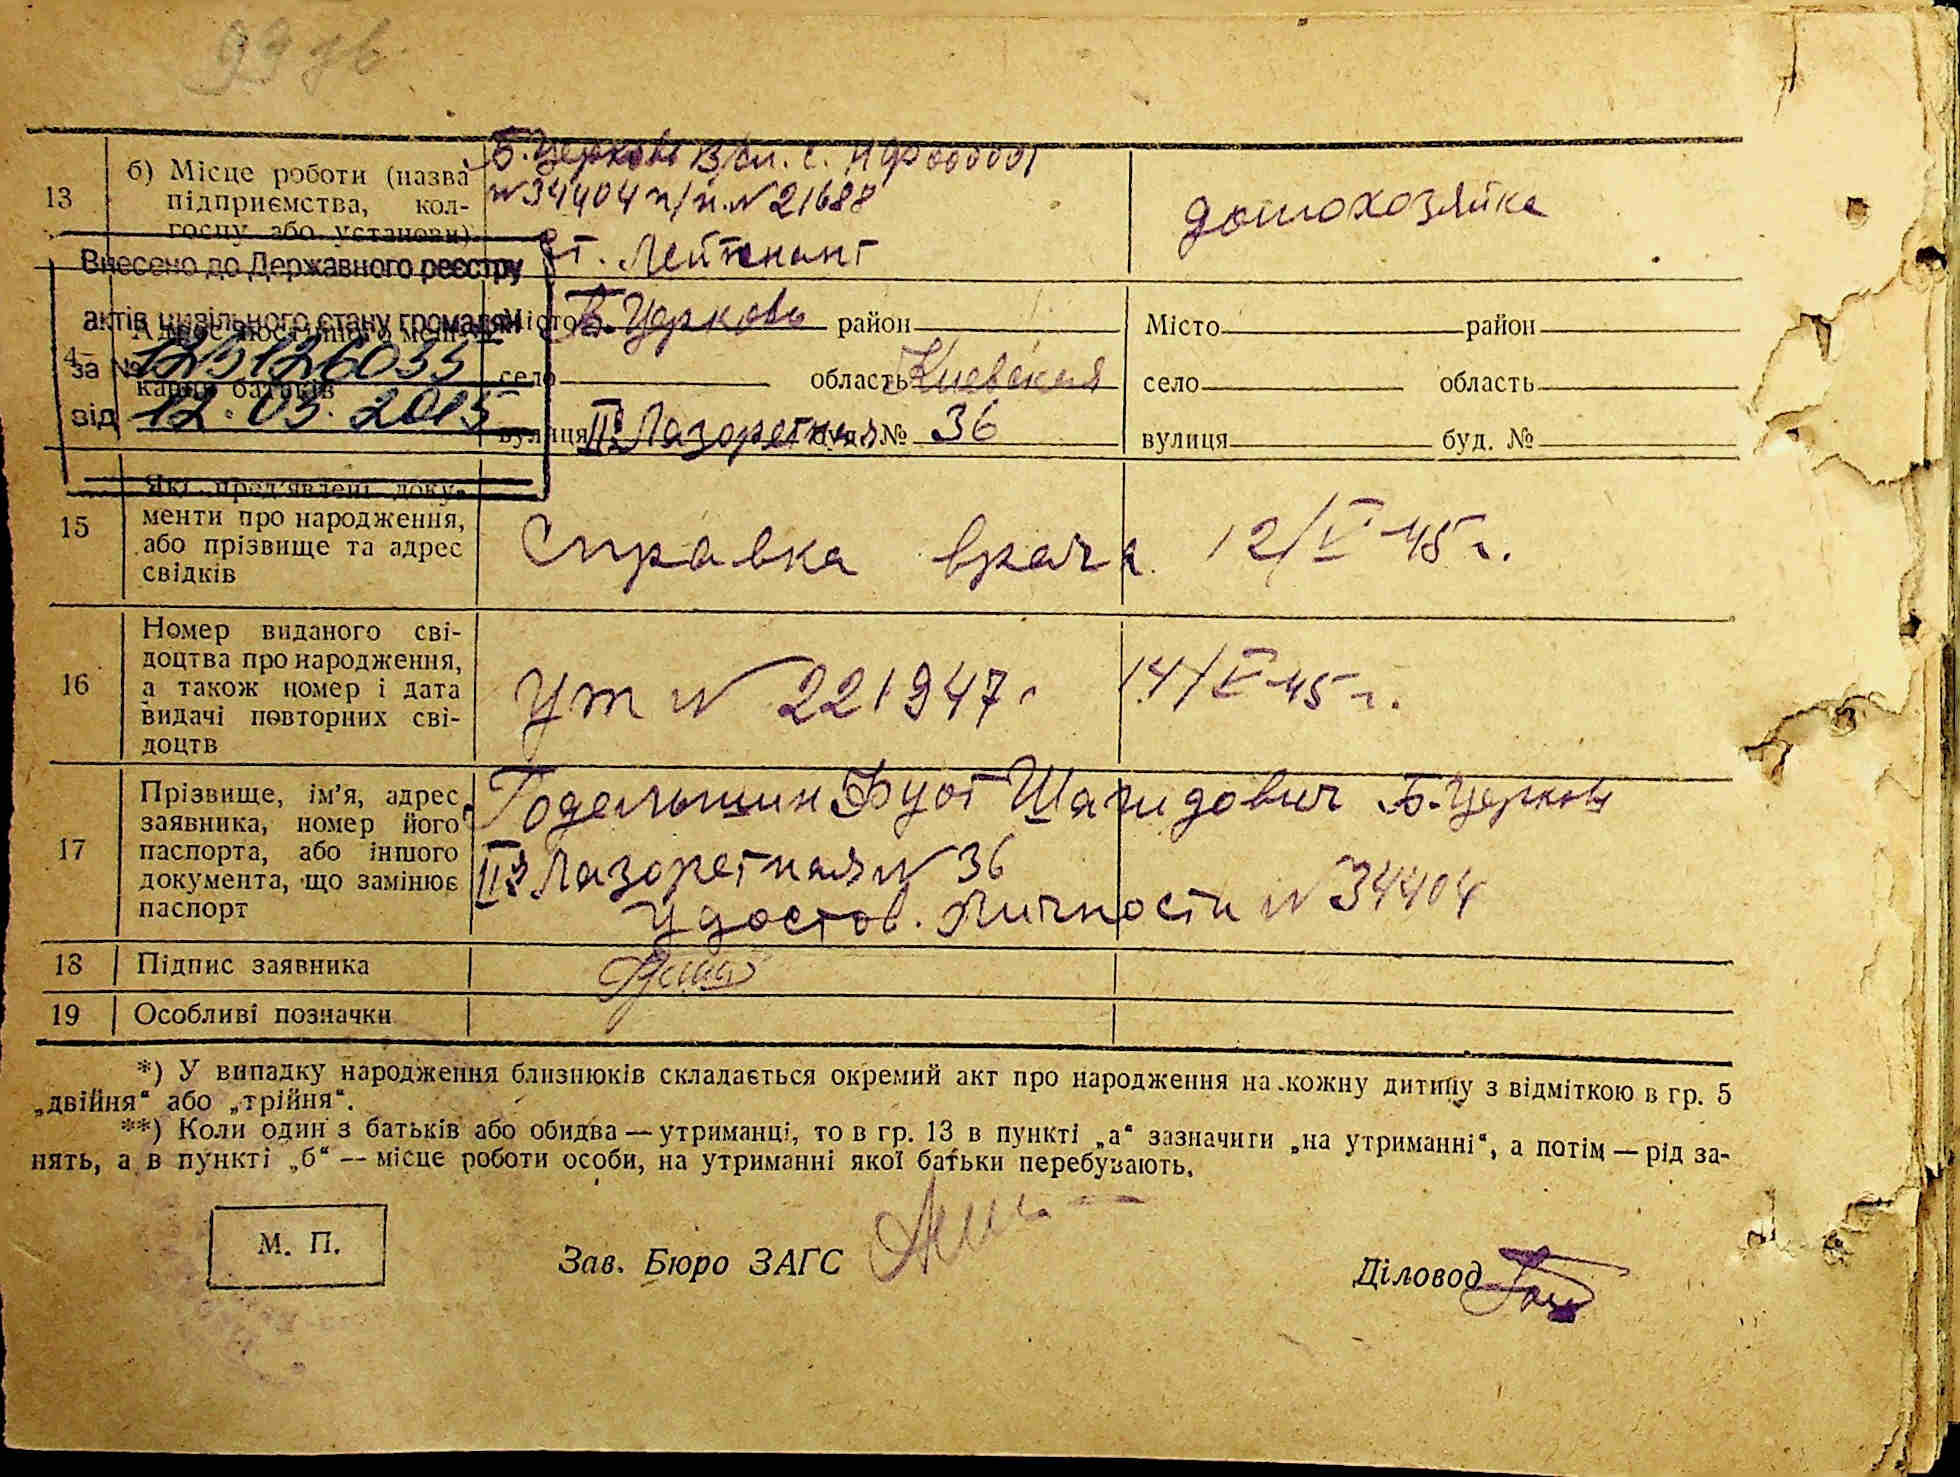 13
б) Місце роботи (назва підприємства, колгоспу або установи)
Б. Церковь
№34404 п/п. №21688
Ст. Лейтенант
домохозяйка
Внесено до Державного реєстру
актів цивільного стану громадян
за № 125126033
від 12.03.2015
Місто Б. Церковь район
село область Киевская
вулиця IIя Лазоретная буд. № 36
Місто район
село область
вулиця буд. №
15
Які пред'явлені доку-
менти про народження,
або прізвище та адрес
свідків
Справка врача 12/V-45 г.
16
Номер виданого сві-
доцтва про народження,
а також номер і дата
видачі повторних сві-
доцтв
УЖ № 221947. 14/V-45 г.
17
Прізвище, ім'я, адрес
заявника, номер його
паспорта, або іншого
документа, що замінює
паспорт
Б. Церковь
IIя Лазоретная № 36
Удостов. Личности № 34404
18 Підпис заявника
19 Особливі позначки
*) У випадку народження близнюків складається окремий акт про народження на кожну дитину з відміткою в гр. 5
„двійня“ або „трійня“.
**) Коли один з батьків або обидва — утриманці, то в гр. 13 в пункті „а“ зазначити „на утриманні“, а потім — рід за-
нять, а в пункті „б“ — місце роботи особи, на утриманні якої батьки перебувають.
М. П.
Зав. Бюро ЗАГС
Діловод